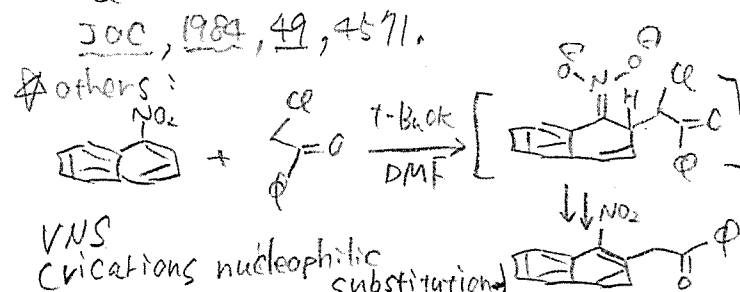 JOC, 1984, 49, 4571.
☆ others:
NO₂
Cl
O
+
t-BuOK
DMF
⊖ ⊖
O N O
H
Cl
O
φ
φ
NO₂
φ
O
VNS
Crications nucleophilic
substitution